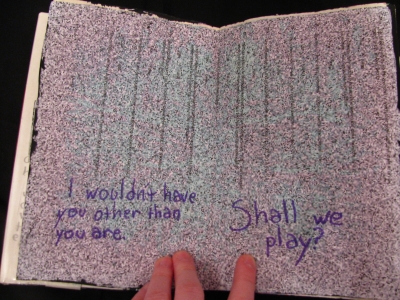 I wouldnt have
you other than
you are.
Shall we
play?